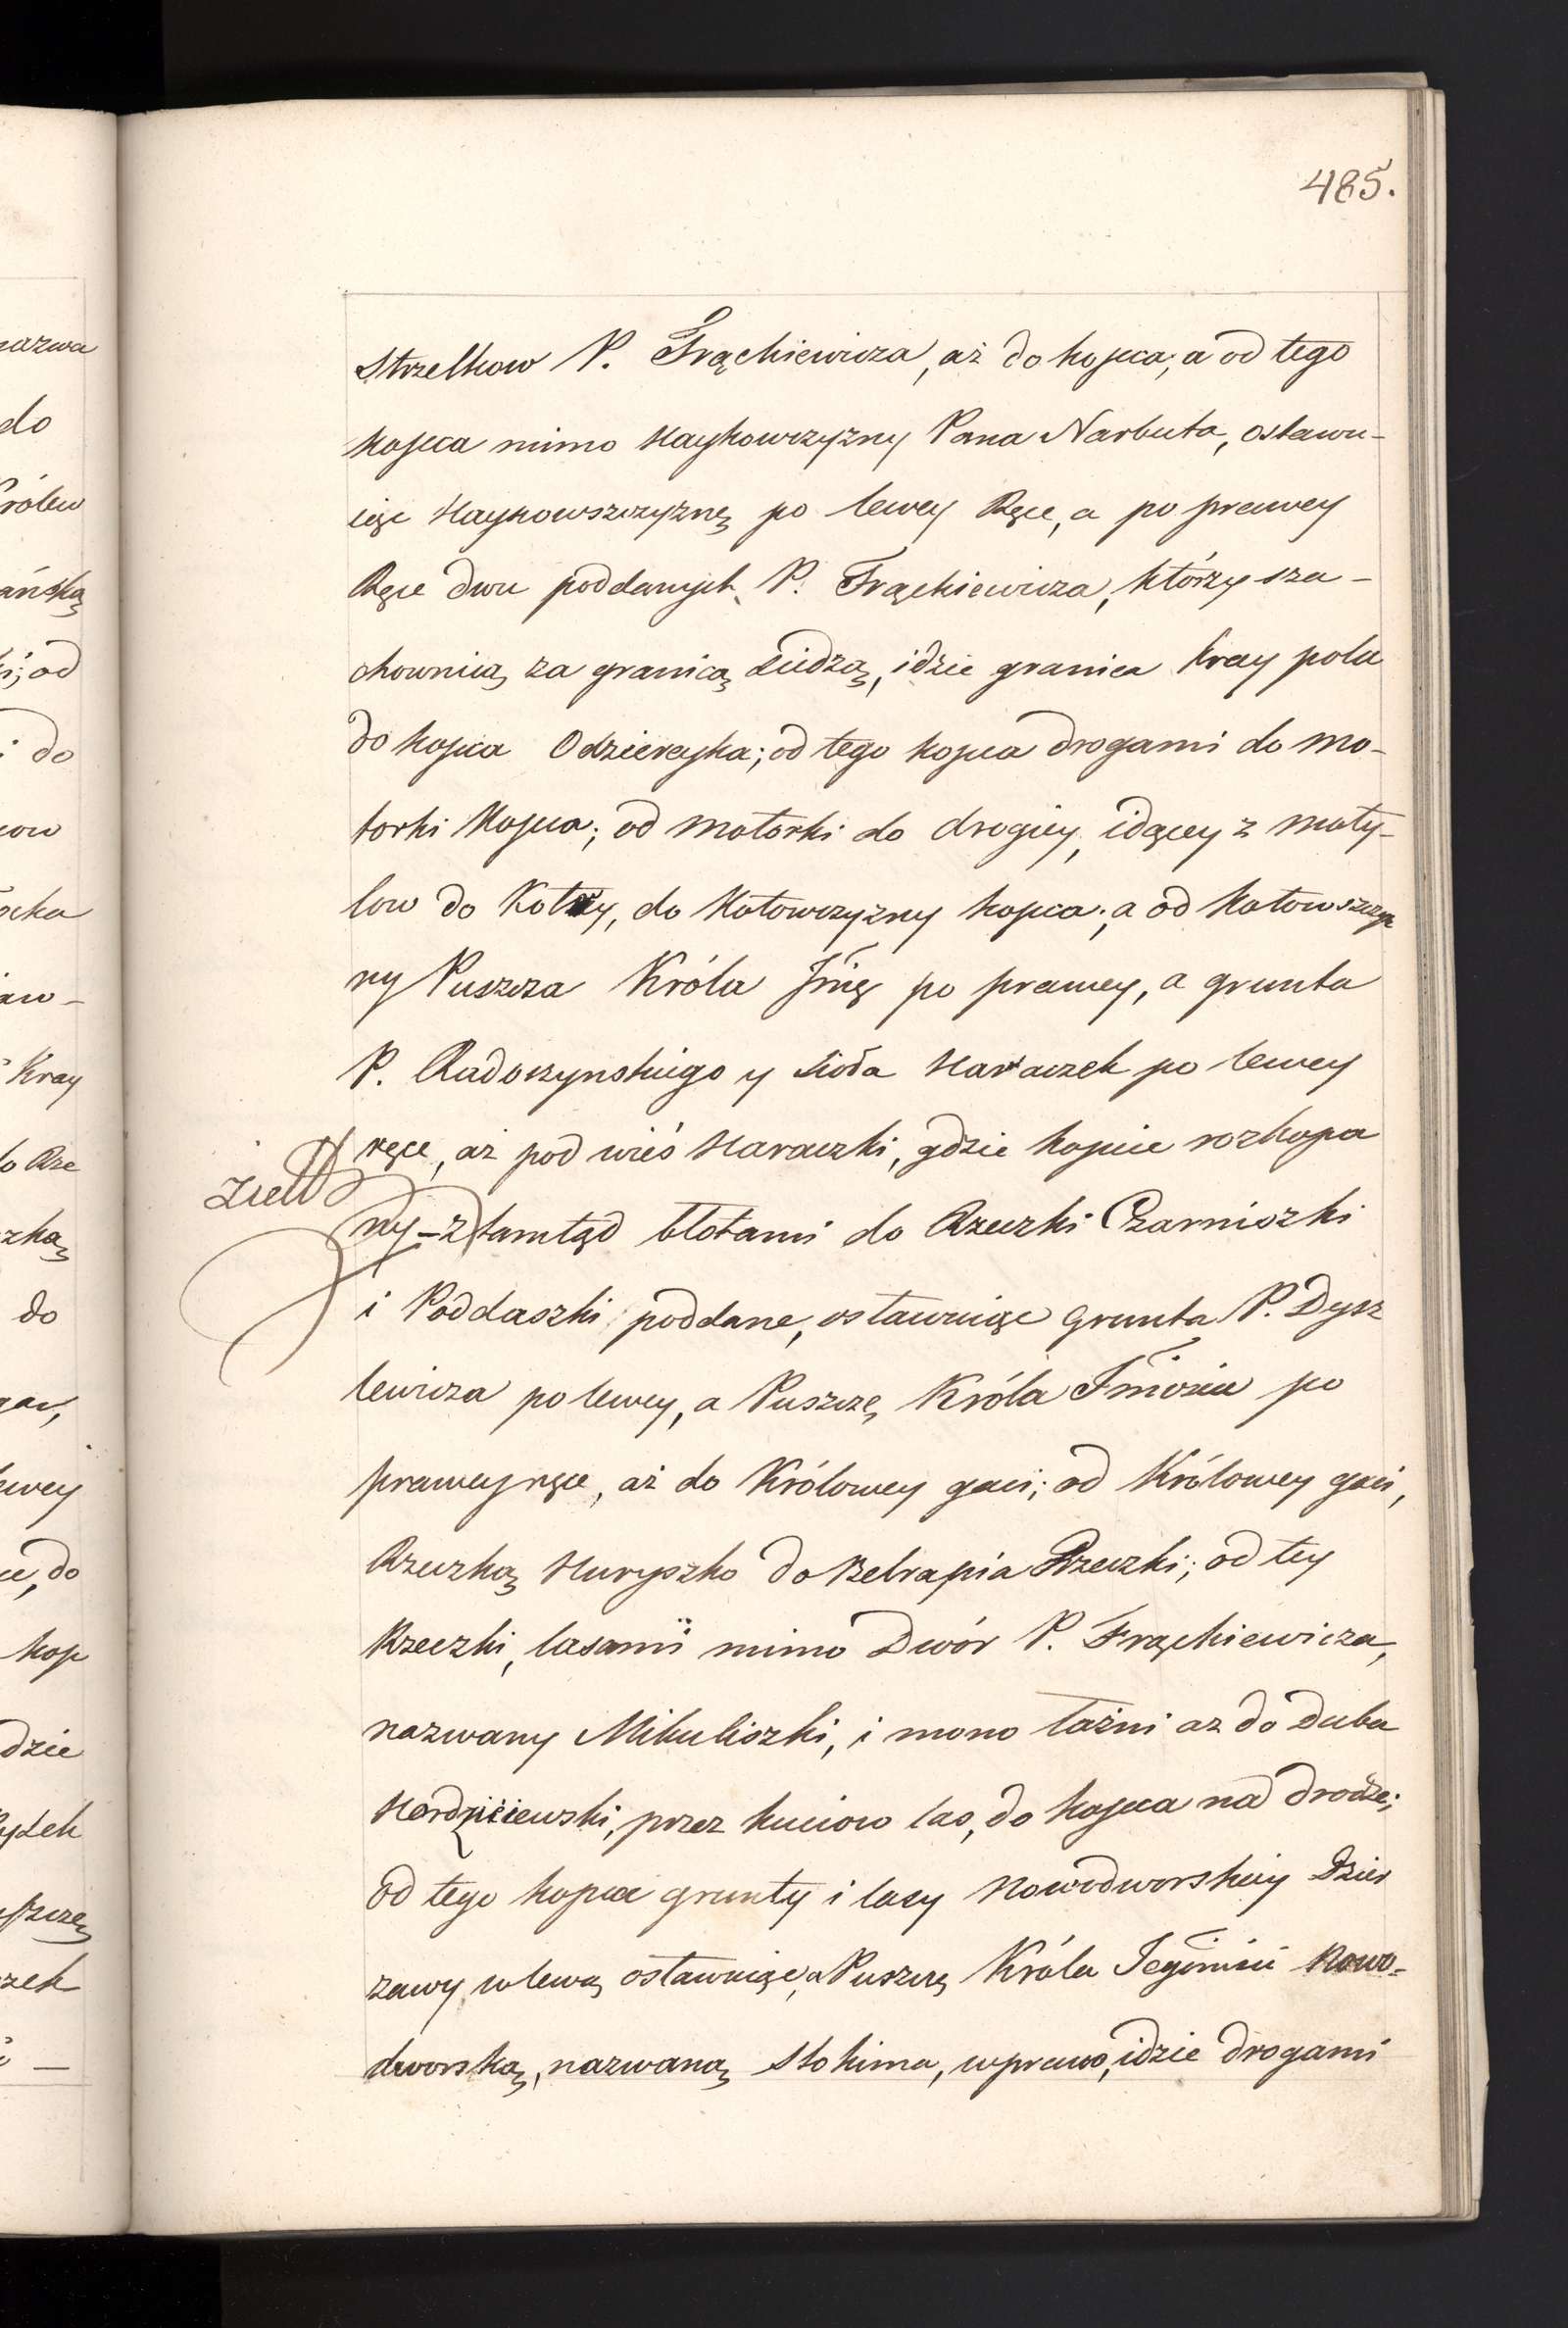 485.
Strzelkow P. Frąckiewicza, aż do kopca; a od tego
kopca mimo Haykowczyzny Pana Narbuta, ostawu-
iąc Haykowszczyznę po lewey Ręce, a po prawey
Ręce dwu poddanych P. Frąckiewicza, którzy sza-
chownicą za granicą siedzą, idzie granica kray pola
do kopca Odziereyka; od tego kopca drogami do mo-
torki kopca; od motorki do drogiey, idącey z moty-
low do Kotry, do Kotowczyzny kopca; a od Kotowszczyz
ny Puszcza Króla Jmę po prawey, a grunta
P. Radoszynskiego y sioła Haraczek po lewey
ręce, aż pod wieś Haraczki, gdzie kopiec rozkopa
ny – z tamtąd błotami do Rzeczki Czarniszki
i Poddaszki poddane, ostawuiąc grunta P. Dysz
lewicza po lewey, a Puszczę Króla Jmości po
prawey ręce, aż do Królowey gaci; od Królowey gaci,
Rzeczką Huryszko do Bebrapia Rzeczki; od tey
Rzeczki, lasami mimo Dwór P. Frąckiewicza,
nazwany Mikuliszki, i mono łaźni az do Duba
przez kuciow las, do kopca na drodze;
od tego kopca grunty i lasy Nowodworskiey Dzier
zawy w lewą ostawuiąc, a Puszczę Króla Jegomści Nowo-
dworską, nazwaną Stokima, w prawo, idzie drogami
nazwa
do
Królew
ańską
i; od
i do
Kray
do Rze
zką
do
wey
ce, do
kop
dzie
zek